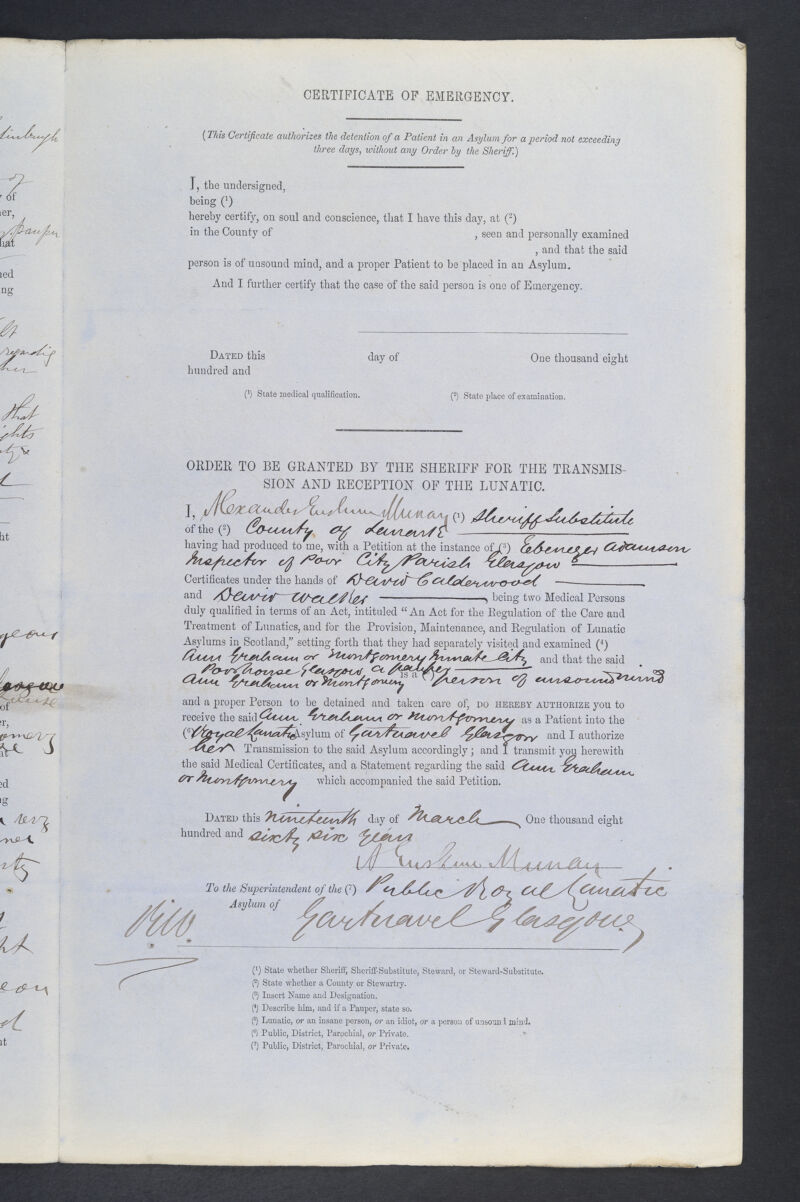 CERTIFICATE OF EMERGENCY.
(This Certificate authorizes the detention of a Patient in an Asylum for a period not exceeding
three days, without any Order by the Sheriff.)
I, the undersigned,
being (1)
hereby certify, on soul and conscience, that I have this day, at (2)
in the County of , seen and personally examined
, and that the said
person is of unsound mind, and a proper Patient to be placed in an Asylum.
And I further certify that the case of the said person is one of Emergency.
DATED this day of One thousand eight
hundred and
(1) State medical qualification. (2) State place of examination.
ORDER TO BE GRANTED BY THE SHERIFF FOR THE TRANSMIS-
SION AND RECEPTION OF THE LUNATIC.
I, Alexander Erskine Murray (1) Sheriff Substitute
of the (2) County of Lanark
having had produced to me, with a Petition at the instance of (3) Ebenezer Adamson
Inspector of Poor City Parish Glasgow
Certificates under the hands of David Calderwood
and David Walker , being two Medical Persons
duly qualified in terms of an Act, intituled "An Act for the Regulation of the Care and
Treatment of Lunatics, and for the Provision, Maintenance, and Regulation of Lunatic
Asylums in Scotland," setting forth that they had separately visited and examined (4)
Ann Graham or Montgomery Inmate City and that the said
Poorhouse Glasgow, a pauper
Ann Graham or Montgomery is a (5) person of unsound mind
and a proper Person to be detained and taken care of, DO HEREBY AUTHORIZE you to
receive the said Ann Graham or Montgomery as a Patient into the
(6) Royal Lunatic Asylum of Gartnavel Glasgow and I authorize
her Transmission to the said Asylum accordingly; and I transmit you herewith
the said Medical Certificates, and a Statement regarding the said Ann Graham
or Montgomery which accompanied the said Petition.
DATED this nineteenth day of March One thousand eight
hundred and sixty six years
A Erskine Murray
To the Superintendent of the (7) Public Royal Lunatic
Asylum of Gartnavel Glasgow
(1) State whether Sheriff, Sheriff-Substitute, Steward, or Steward-Substitute.
(2) State whether a County or Stewartry.
(3) Insert Name and Designation.
(4) Describe him, and if a Pauper, state so.
(5) Lunatic, or an insane person, or an idiot, or a person of unsound mind.
(6) Public, District, Parochial, or Private.
(7) Public, District, Parochial, or Private.